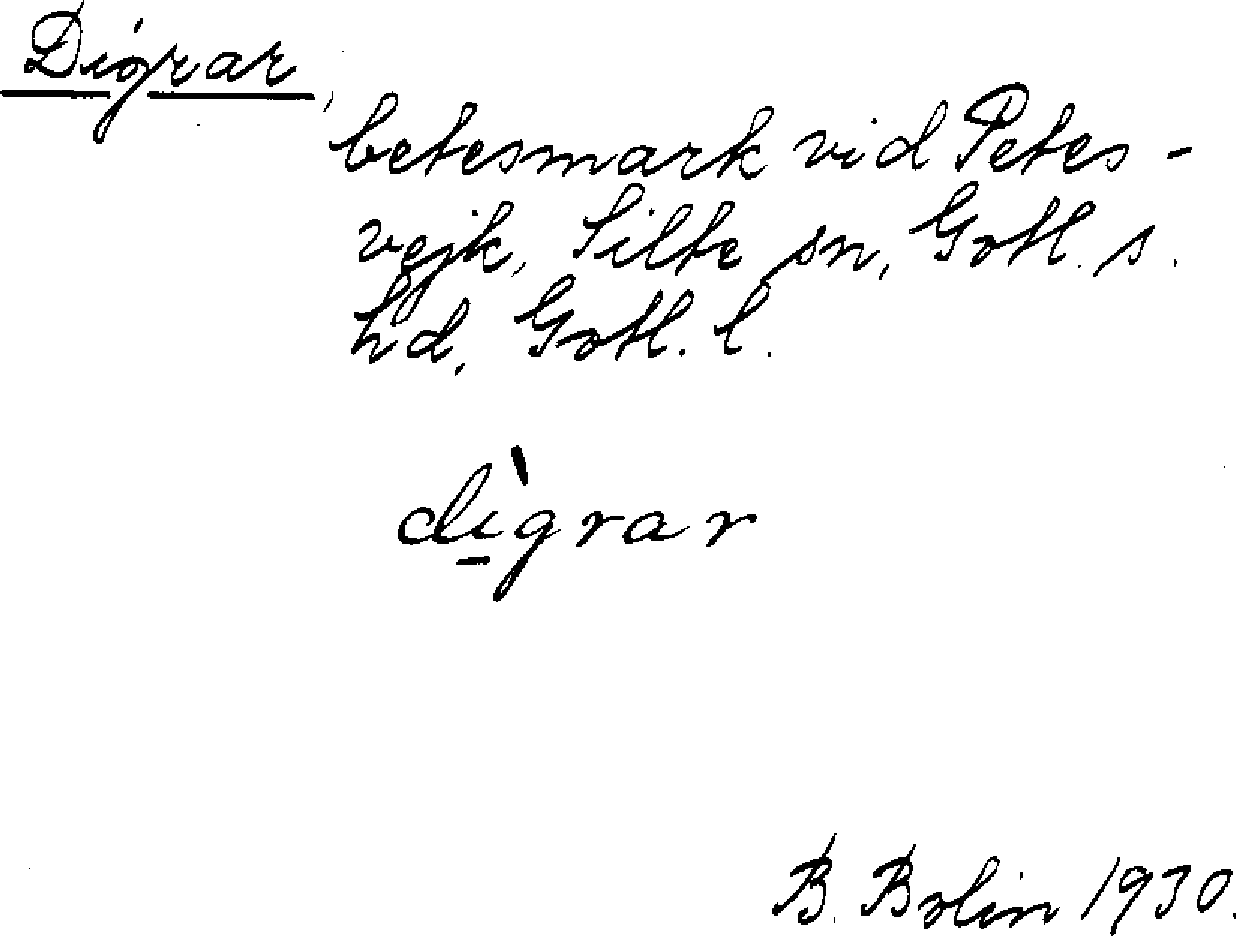 Digrar,
betesmark vid Petes-
vejk, Silte sn, Gotl. s.
hd, Gotl. l.
dì̠grar
B. Bolin 1930.